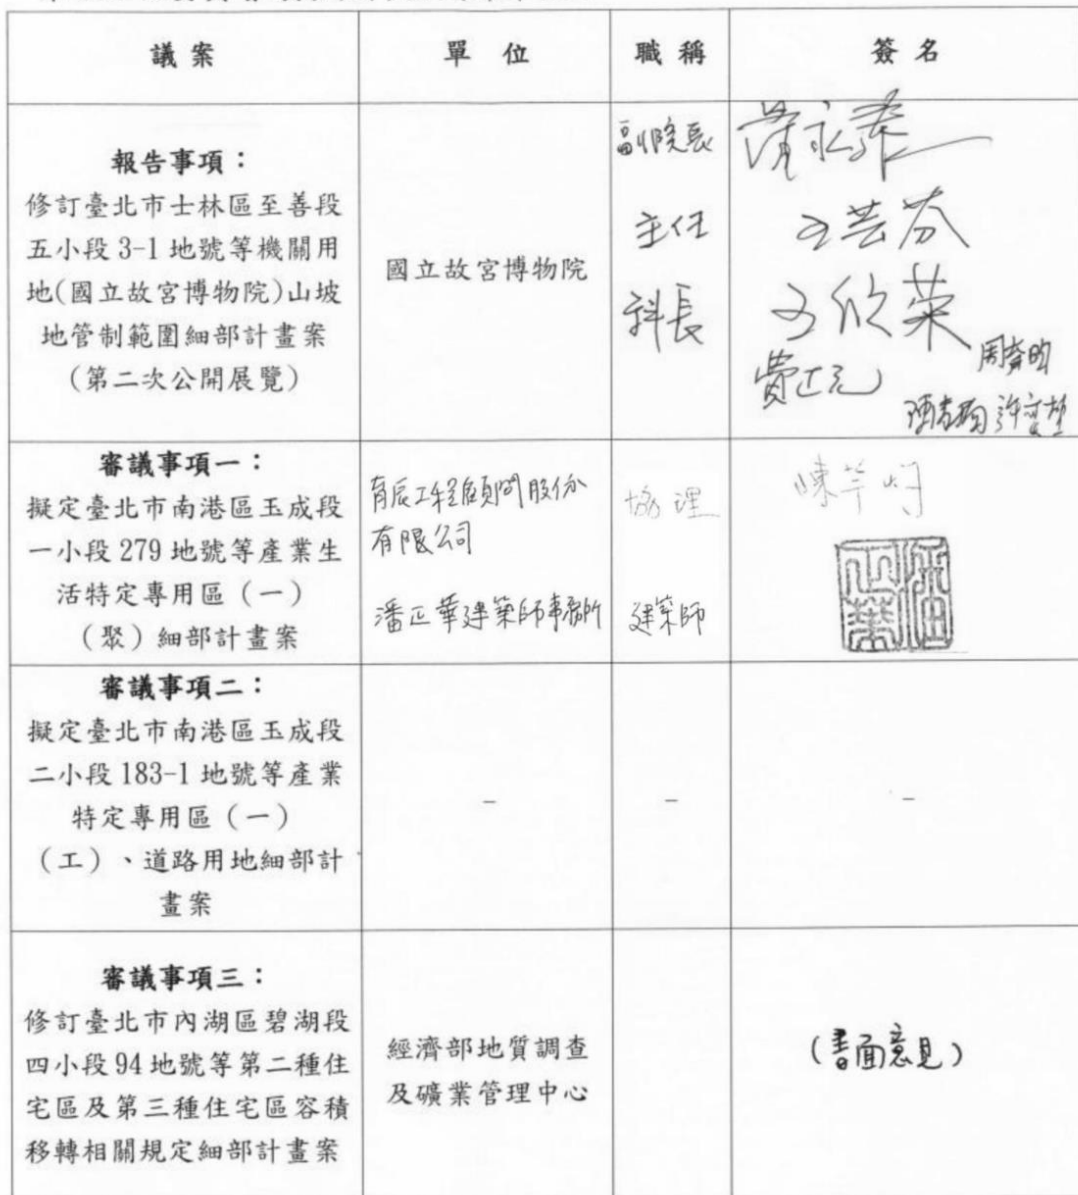 議案 單位 職稱 簽名
報告事項：
修訂臺北市士林區至善段
五小段 3-1 地號等機關用
地(國立故宮博物院)山坡
地管制範圍細部計畫案
（第二次公開展覽）
國立故宮博物院
副院長
主任
科長
王芸芬
王欣榮
審議事項一：
擬定臺北市南港區玉成段
一小段 279 地號等產業生
活特定專用區（一）
（聚）細部計畫案
工程顧問股份
有限公司
潘正華建築師事務所
協理
建築師
審議事項二：
擬定臺北市南港區玉成段
二小段 183-1 地號等產業
特定專用區（一）
（工）、道路用地細部計
畫案
- - -
審議事項三：
修訂臺北市內湖區碧湖段
四小段 94 地號等第二種住
宅區及第三種住宅區容積
移轉相關規定細部計畫案
經濟部地質調查
及礦業管理中心
(書面意見)